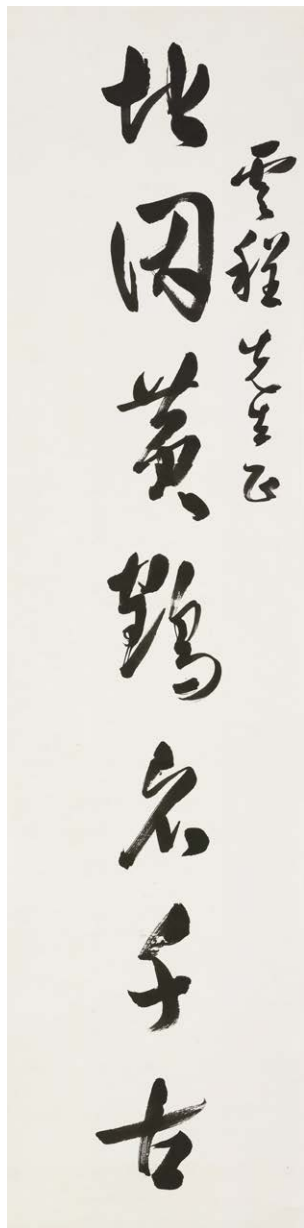 雲程先生正
地因黄鶴名千古